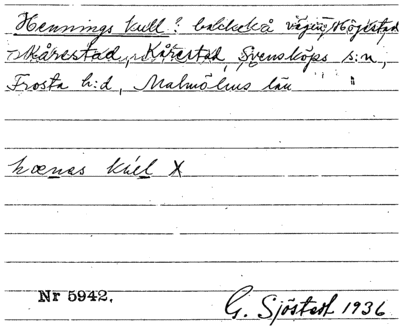 Hennings kull: backe på vägen, Höjestad
Kårestad, Kårestad, Svensköps s:n,
Frosta h:d, Malmöhus län
hœnas kúel X
Nr 5942.
G. Sjöstedt 1936